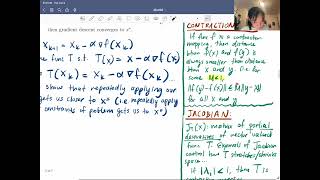 then gradient descent converges to x*.
x_{k+1} = x_k - α∇f(x_k)
func T s.t. T(x) = x - α∇f(x)
T(x_k) = x_k - α∇f(x_k)
show that repeatedly applying our
gets us closer to x* (i.e. repeatedly apply
constraints of problem gets us to x*)
CONTRACTION:
If func f is a contraction
mapping, then distance
btwn f(x) and f(y) is
always smaller than distance
btwn x and y. i.e. for
some k<1,
||f(x)-f(y)|| ≤ k||x-y||
for all x and y
JACOBIAN:
J_T(x): matrix of partial
derivatives of vector valued
func T. Eigenvals of Jacobian
control how T stretches/shrinks
space...
if |λ_i| < 1, then T is